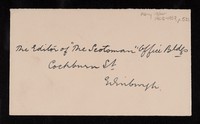 The Editor of "The Scotsman" Office Bldgs
Cockburn St
Edinburgh.